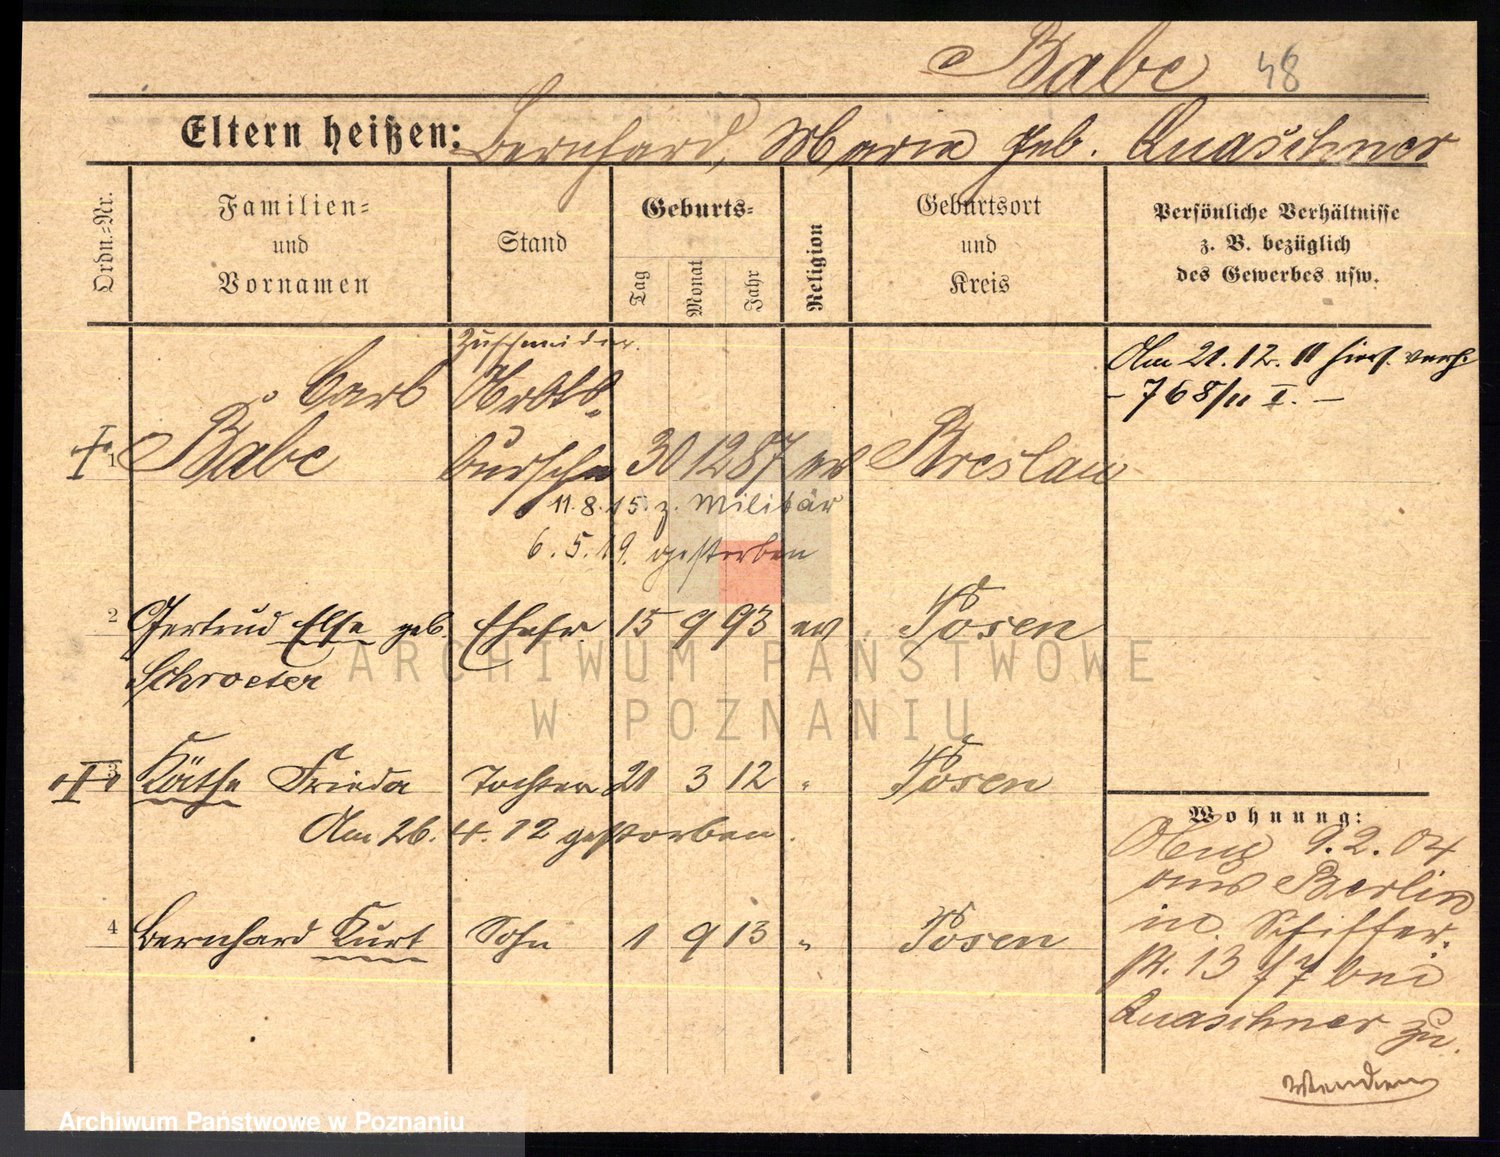 Babe 48
Eltern heißen: Bernhard, Marie geb. Quaschner
Ordn.-Nr.
Familien-
und
Vornamen
Stand
Geburts-
Tag
Monat
Jahr
Religion
Geburtsort
und
Kreis
Persönliche Verhältnisse
z. B. bezüglich
des Gewerbes usw.
Zuschneider.
Carl Arbts-
1 Babe bursche 30 12 87 ev Breslau
11.8.15. z. Militär
6.5.19. gestorben
Am 21.12.11 hier verh.
- 768/11 I. -
2 Gertrud Else geb. Ehefr. 15 9 93 ev Posen
Schroeter
3 Käthe Frieda Tochter 21 3 12 " Posen
Am 26.4.12 gestorben.
4 Bernhard Kurt Sohn 1 9 13 " Posen
Wohnung:
9.2.04
aus Berlin
in Schiffer-
str. 13 bei
Quaschner zu.
Wenden
ARCHIWUM PAŃSTWOWE
W POZNANIU
Archiwum Państwowe w Poznaniu